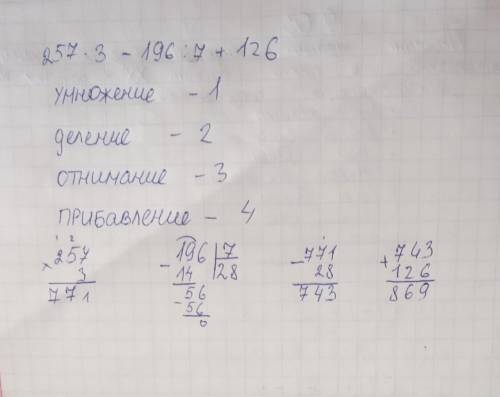 257 · 3 - 196 : 7 + 126
умножение - 1
деление - 2
отнимание - 3
прибавление - 4
1 2
× 257
3
771
- 196 | 7
14 | 28
56
- 56
0
- 771
28
743
+ 743
126
869